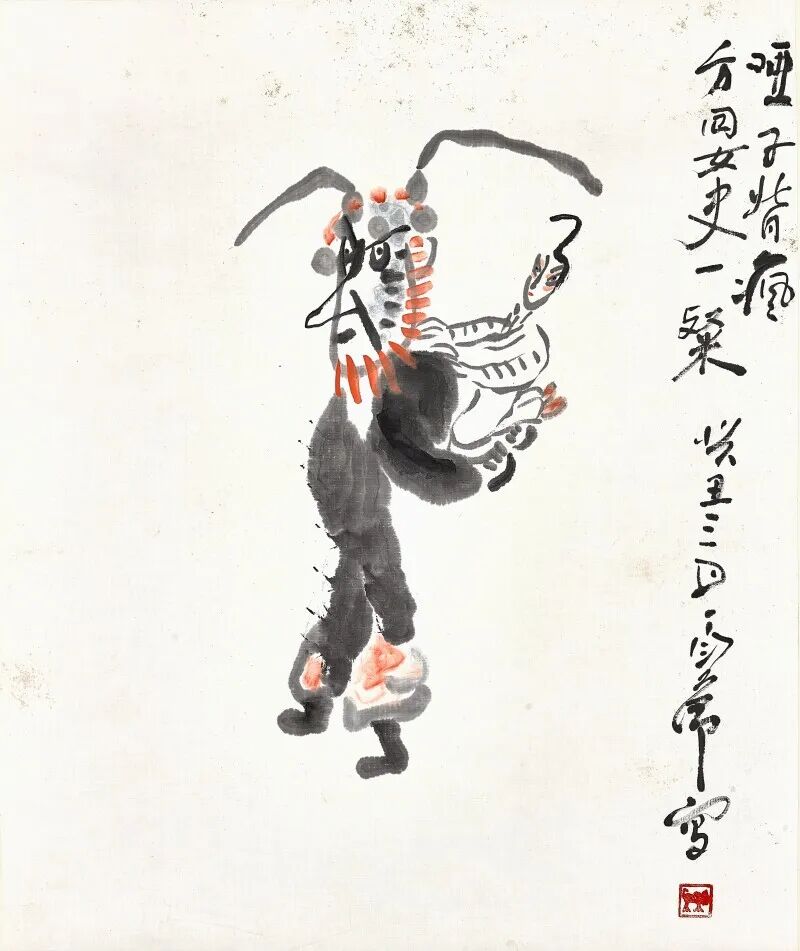 啞子背瘋
方回女史一粲 癸丑三月丁衍庸寫